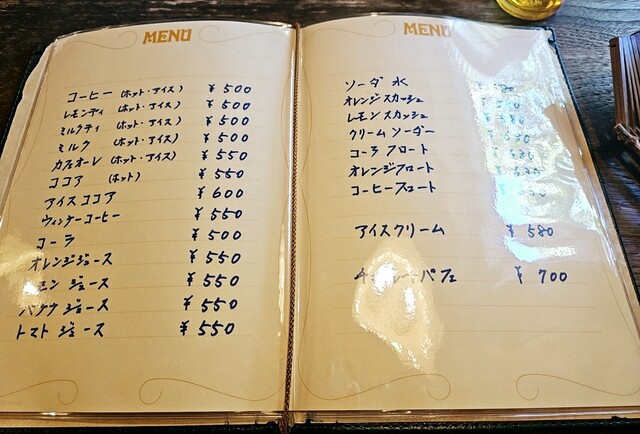 MENU
コーヒー (ホット・アイス) ¥500
レモンティ (ホット・アイス) ¥500
ミルクティ (ホット・アイス) ¥500
ミルク (ホット・アイス) ¥500
カフェオーレ (ホット・アイス) ¥550
ココア (ホット) ¥550
アイスココア ¥600
ウィンナーコーヒー ¥550
コーラ ¥500
オレンジジュース ¥550
ジュース ¥550
バナナジュース ¥550
トマトジュース ¥550
MENU
ソーダ水
オレンジスカッシュ
レモンスカッシュ
クリームソーダー
コーラフロート
オレンジフロート
コーヒーフロート
アイスクリーム ¥580
パフェ ¥700